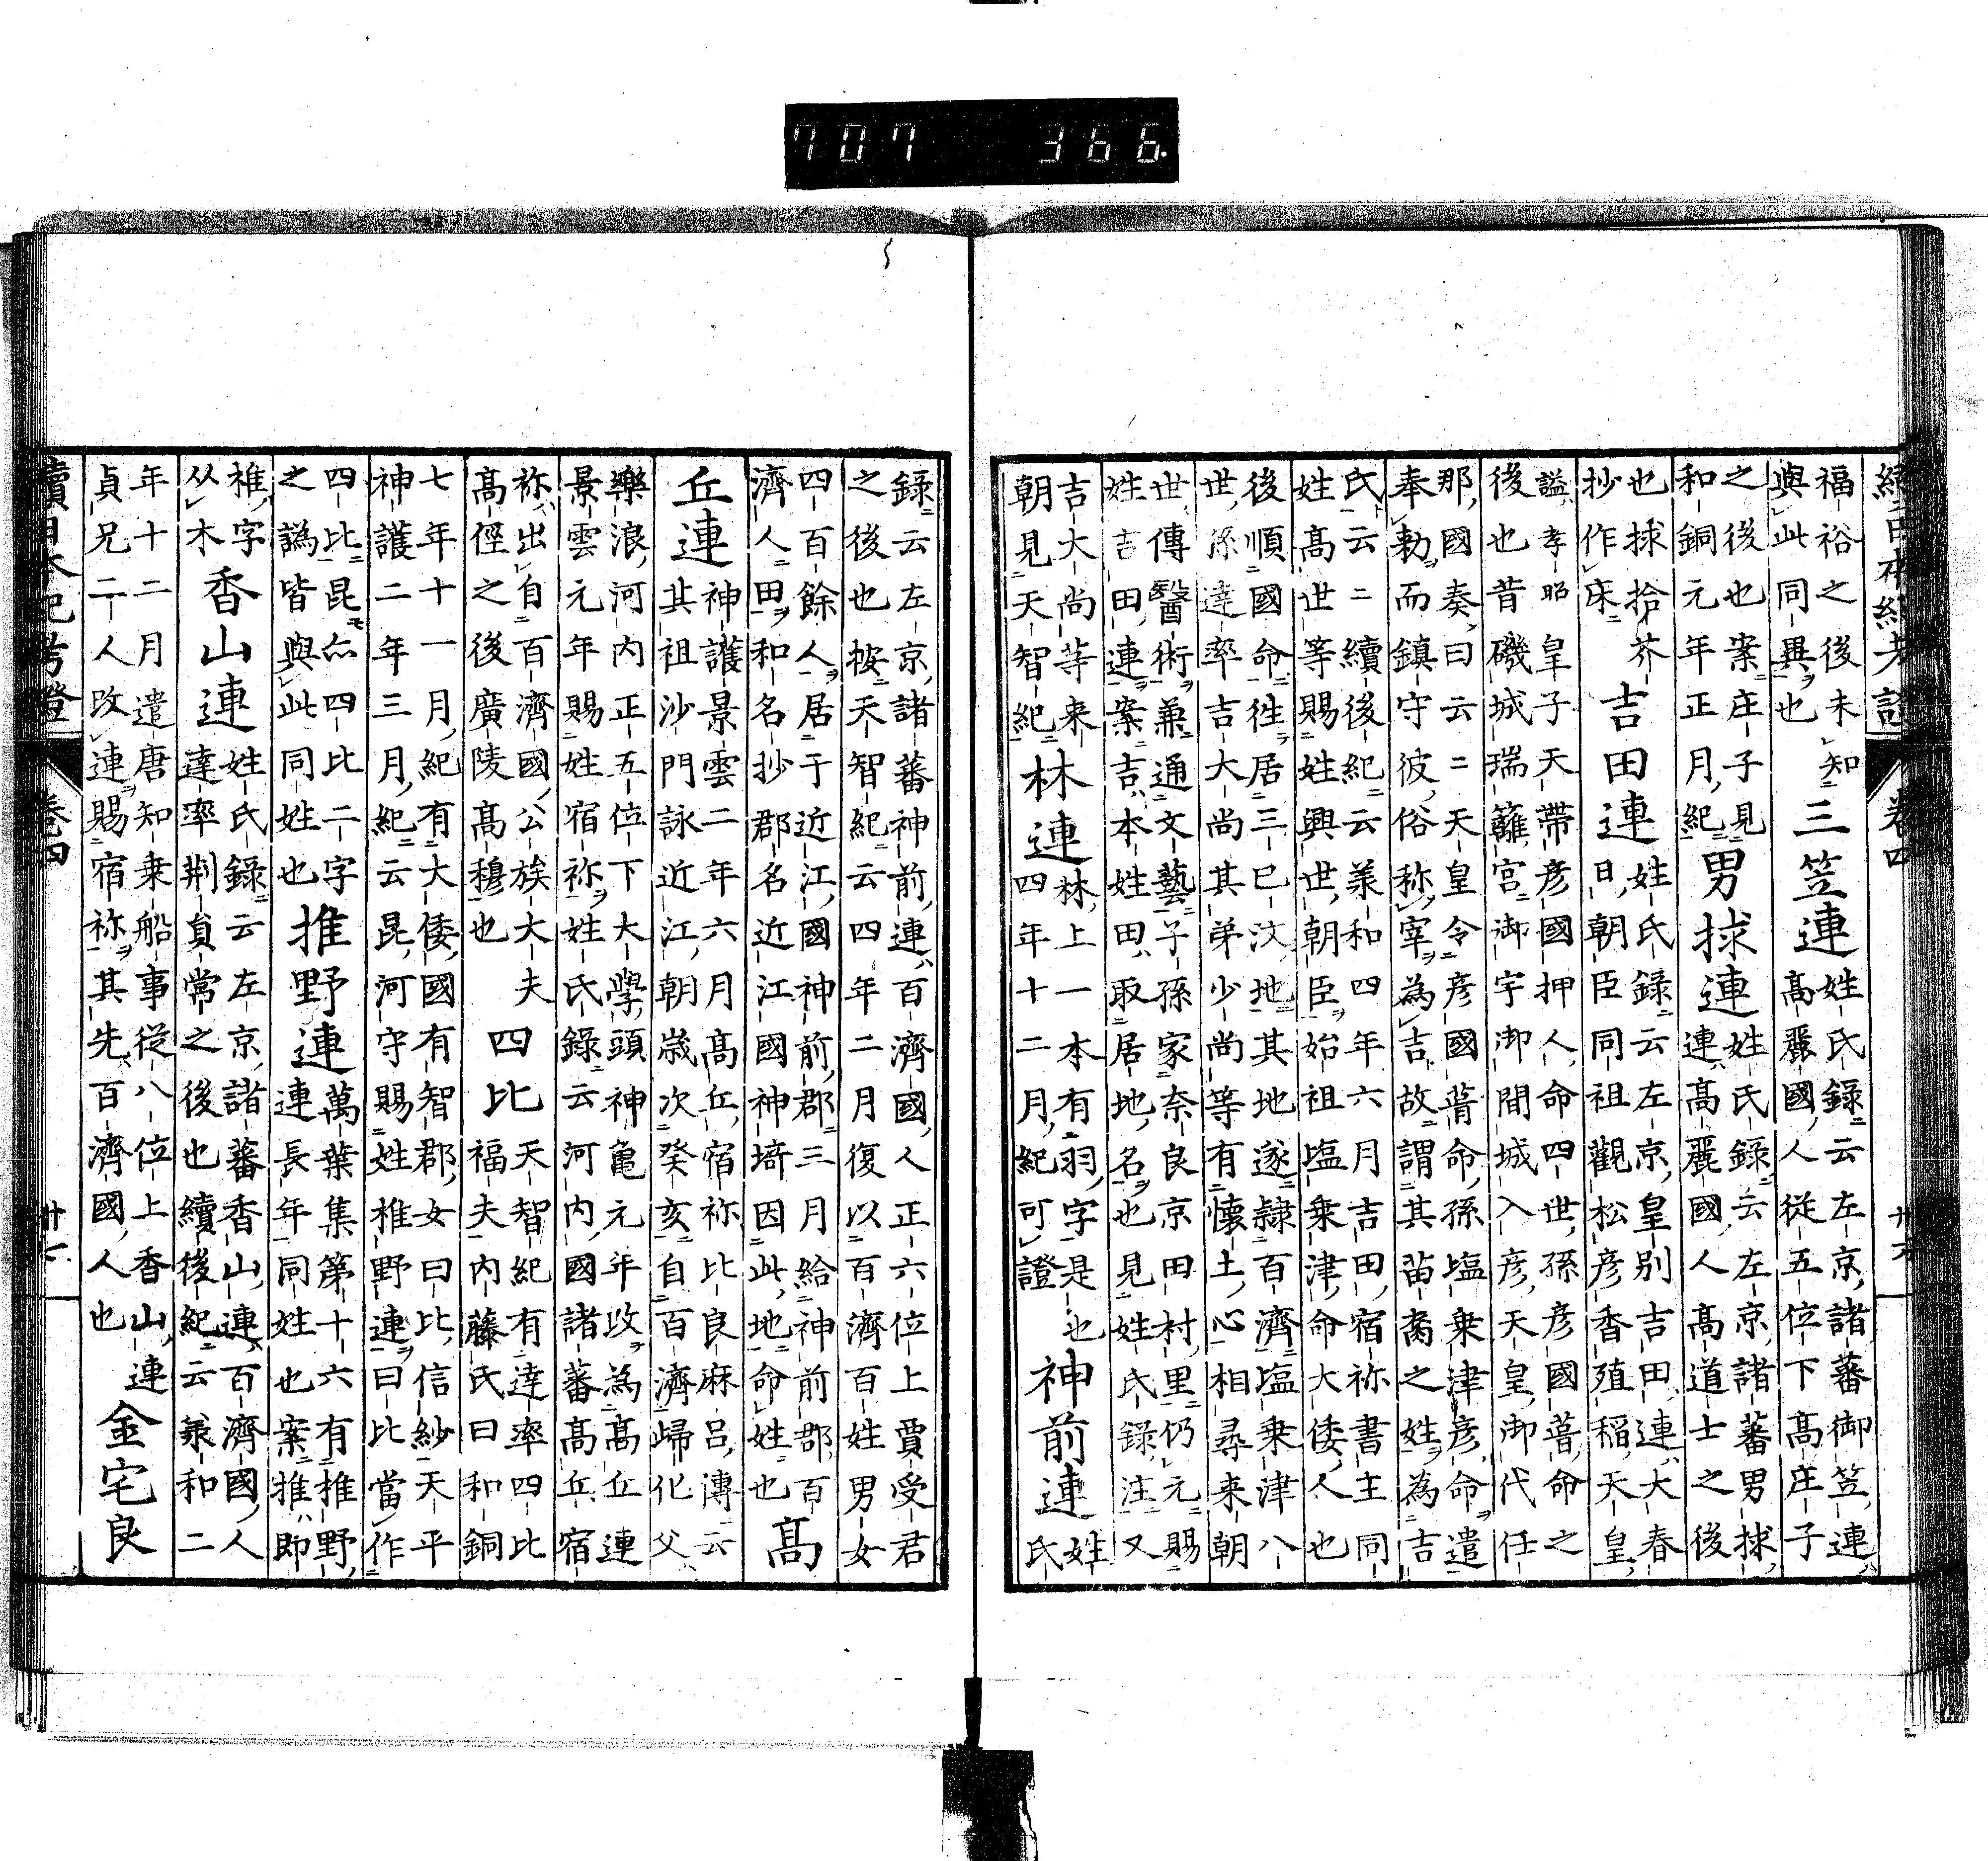 707 366.
續日本紀考證 卷四 廿六
福裕之後未知
與此同異也
三笠連
姓氏録云左京諸蕃御笠連
高麗國人從五位下高庄子
之後也案庄子見
和銅元年正月紀
男捄連
姓氏録云左京諸蕃男捄
連高麗國人高道士之後
也捄拾芥
抄作床
吉田連
姓氏録云左京皇別吉田連大春
日朝臣同祖觀松彦香殖稲天皇
謚孝昭皇子天帶彦國押人命四世孫彦國葺命之
後也昔磯城瑞籬宮御宇御間城入彦天皇御代任
那國奏曰云〻天皇令彦國葺命孫塩乗津彦命遣
奉勅而鎮守彼俗称宰為吉故謂其苗裔之姓為吉
氏云〻續後紀云羕和四年六月吉田宿祢書主同
姓髙世等賜姓興世朝臣始祖塩乗津命大倭人也
後順國命徃居三巳汶地其地遂隷百濟塩乗津八
世孫達率吉大尚其弟少尚等有懐土心相尋来朝
世傳醫術兼通文藝子孫家奈良京田村里仍元賜
姓吉田連案吉本姓田取居地名也見姓氏録注又
吉大尚等来
朝見天智紀
林連
林上一本有羽字是也
四年十二月紀可證
神前連
姓
氏
録云左京諸蕃神前連百濟國人正六位上賈受君
之後也按天智紀云四年二月復以百濟百姓男女
四百餘人居于近江國神前郡三月給神前郡百
濟人田和名抄郡名近江國神埼因此地命姓也
髙
丘連
神護景雲二年六月髙丘宿祢比良麻呂傳云
其祖沙門詠近江朝歳次癸亥自百濟歸化父
樂浪河内正五位下大學頭神亀元年改為髙丘連
景雲元年賜姓宿祢姓氏録云河内國諸蕃髙丘宿
祢出自百濟國公族大夫
髙侄之後廣陵髙穆也
四比
天智紀有達率四比
福夫内藤氏曰和銅
七年十一月紀有大倭國有智郡女曰比信紗天平
神護二年三月紀云昆河守賜姓椎野連曰比當作
四比昆亦四比二字
之譌皆與此同姓也
推野連
萬葉集第十六有椎野
連長年同姓也案推即
椎字
从木
香山連
姓氏録云左京諸蕃香山連百濟國人
達率荆貟常之後也續後紀云羕和二
年十二月遣唐知乗船事從八位上香山連
貞兄二人改連賜宿祢其先百濟國人也
金宅良
續日本紀考證 卷四 廿七